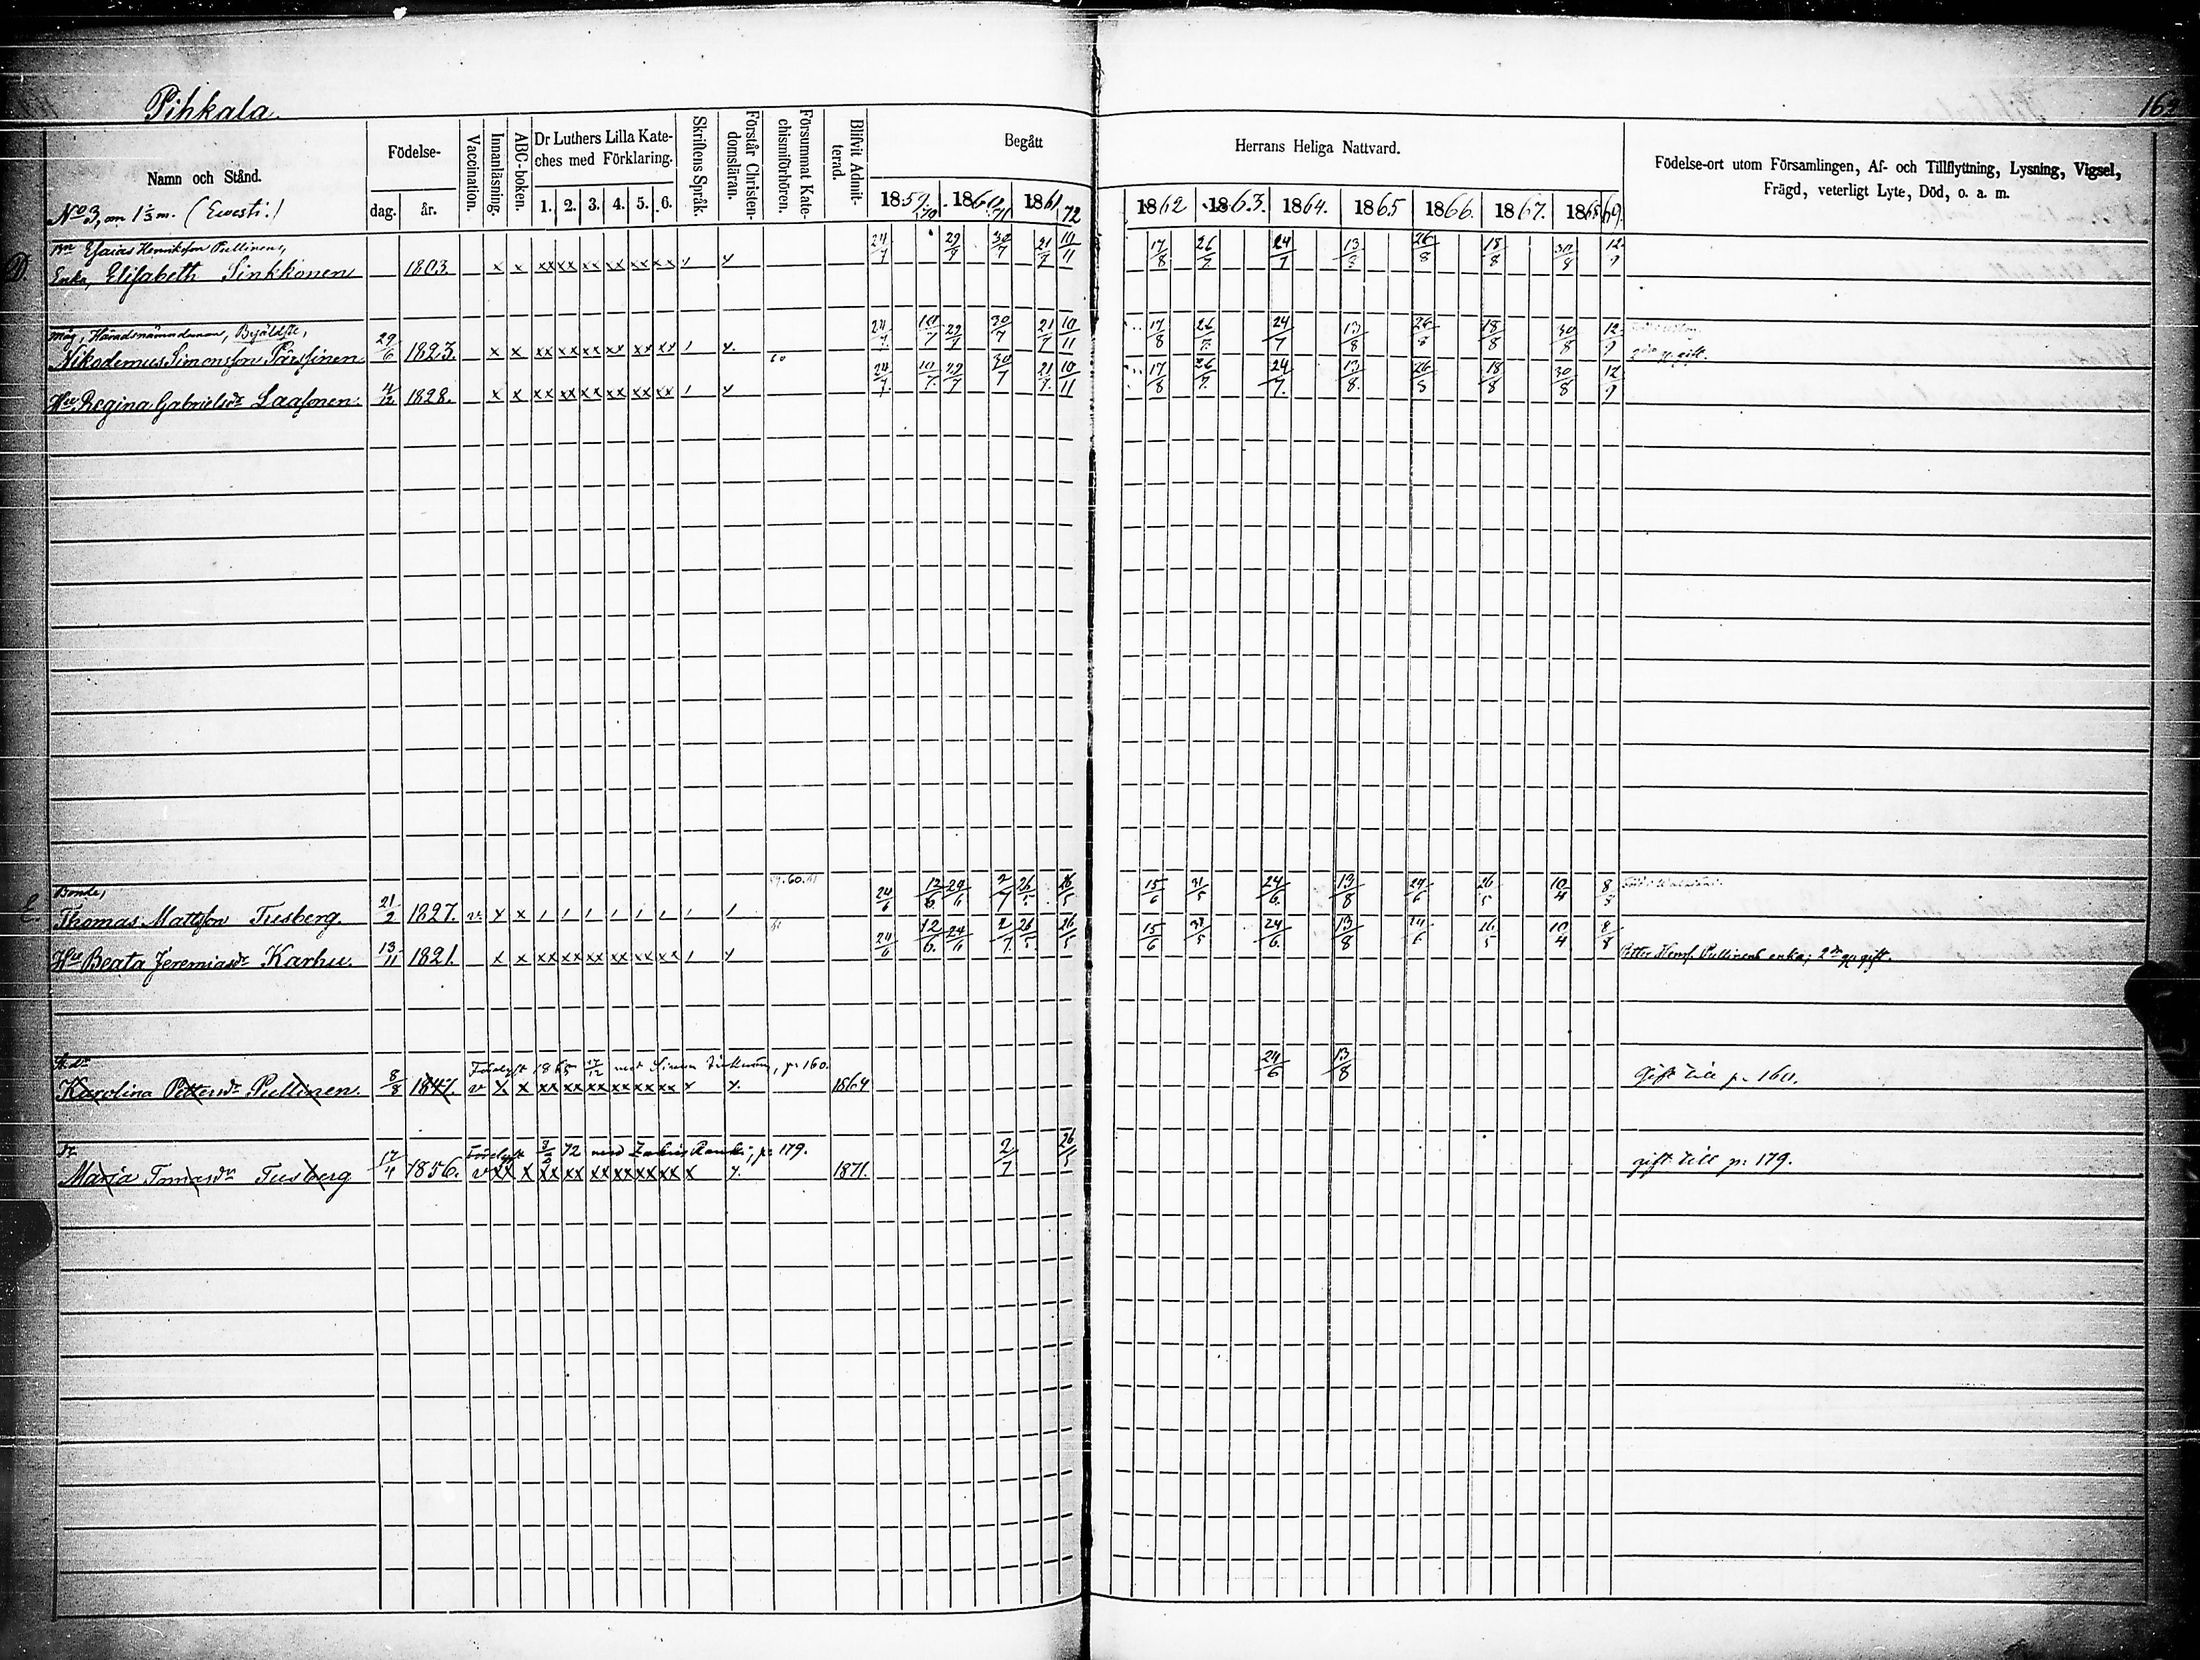 Pihkala
163
Namn och Stånd.
Födelse-
dag.
år.
Vaccination.
Innanläsning.
ABC-boken.
Dr Luthers Lilla Kate-
ches med Förklaring.
1. 2. 3. 4. 5. 6.
Skriftens Språk.
Förstår Christen-
domsläran.
Försummat Kate-
chismiförhören.
Blifvit Admit-
terad.
Begått
Herrans Heliga Nattvard.
1859. 1860 1861 72
70 71
1862 1863. 1864. 1865 1866. 1867. 1868 69.
Födelse-ort utom Församlingen, Af- och Tillflyttning, Lysning, Vigsel,
Frägd, veterligt Lyte, Död, o. a. m.
No 3, om 1⅓ m. (Ewesti.)
D.
Bn Esaias Henriksson Pullinens,
Enka, Elisabeth Sinkkonen 1803 x x xx xx xx xx xx xx 24/7 29/7 30/7 21/7 10/11 17/8 26/7 24/7 13/8 26/8 18/8 30/8 12/9
måg, Häradsnämndeman, Byäldste,
Nikodemus Simonsson Pärssinen 29/6 1823. x x xx xx xx xx xx xx 60 24/7 10/7 29/7 30/7 21/7 10/11 17/8 26/7 24/7 13/8 26/8 18/8 30/8 12/9
2dra g. gift.
Hu Regina Gabrielsdr Laasonen. 4/12 1828. x x xx xx xx xx xx xx 24/7 10/7 29/7 30/7 21/7 10/11 17/8 26/7 24/7 13/8 26/8 18/8 30/8 12/9
E
Bonde,
Thomas Mattsson Tusberg. 21/2 1827. v. x x 60. 24/6 12/6 24/6 2/7 26/5 26/5 15/6 31/5 24/6 13/8 24/6 26/5 10/4 8/8
Hu Beata Jeremiasdr Karhu 13/11 1821. x x xx xx xx xx xx xx 24/6 12/6 24/6 2/7 26/5 26/5 15/6 31/5 24/6 13/8 24/6 26/5 10/4 8/8
Petter Henrs. Pullinens enka; 2dra gg gift.
St. dr
Karolina Pettersdr Pullinen. 8/8 1847. v x x xx xx xx xx xx xx 1864 24/6 13/8
Gift till p. 160.
dr
Maria Tomasdr Tusberg 17/4 1856. v xx x xx xx xx xx xx xx x 1871. 2/7 26/5
gift till p: 179.